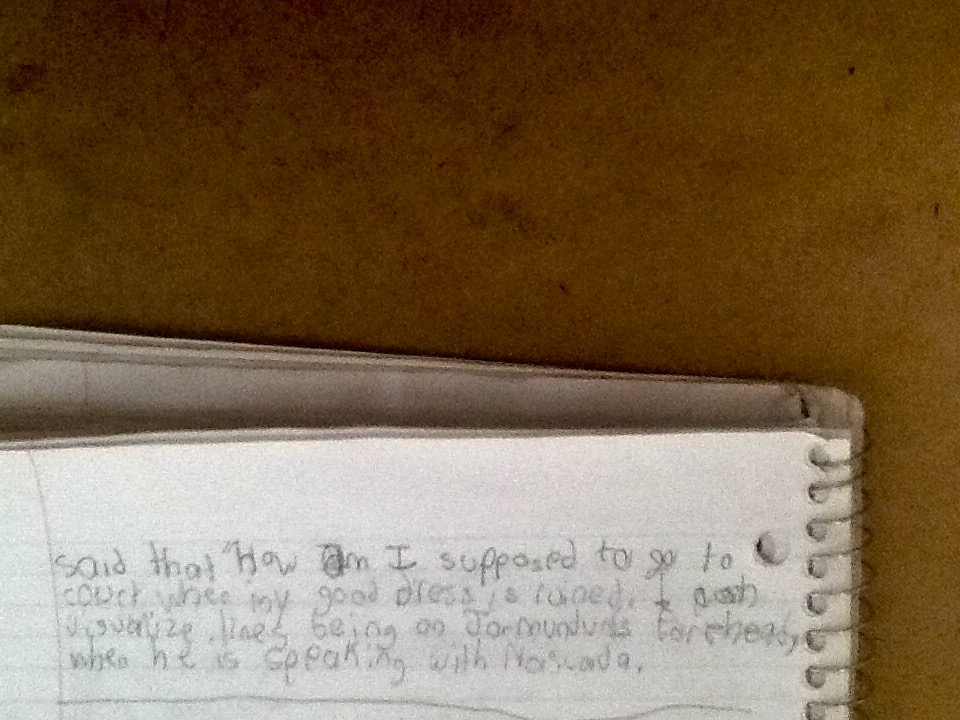 said that "How am I supposed to go to
court when my good dress is ruined. I
visualize lines being on Jormunduds forehead,
when he is speaking with Nasuada.